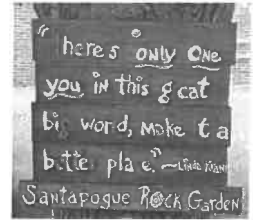 "here's only one
you in this g eat
big word, make t a
bette pla e."
Santapogue Rock Garden